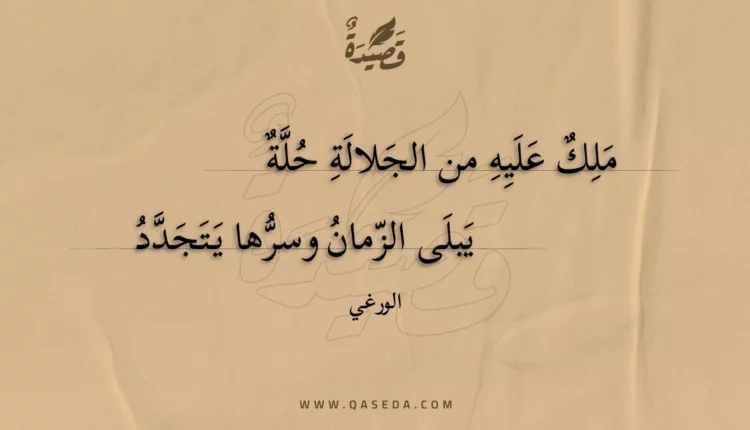 قَصِيدَةٌ
مَلِكٌ عَلَيِهِ من الجَلالَةِ حُلَّةٌ
يَبلَى الزّمانُ وسرُّها يَتَجَدَّدُ
الورغي
WWW.QASEDA.COM